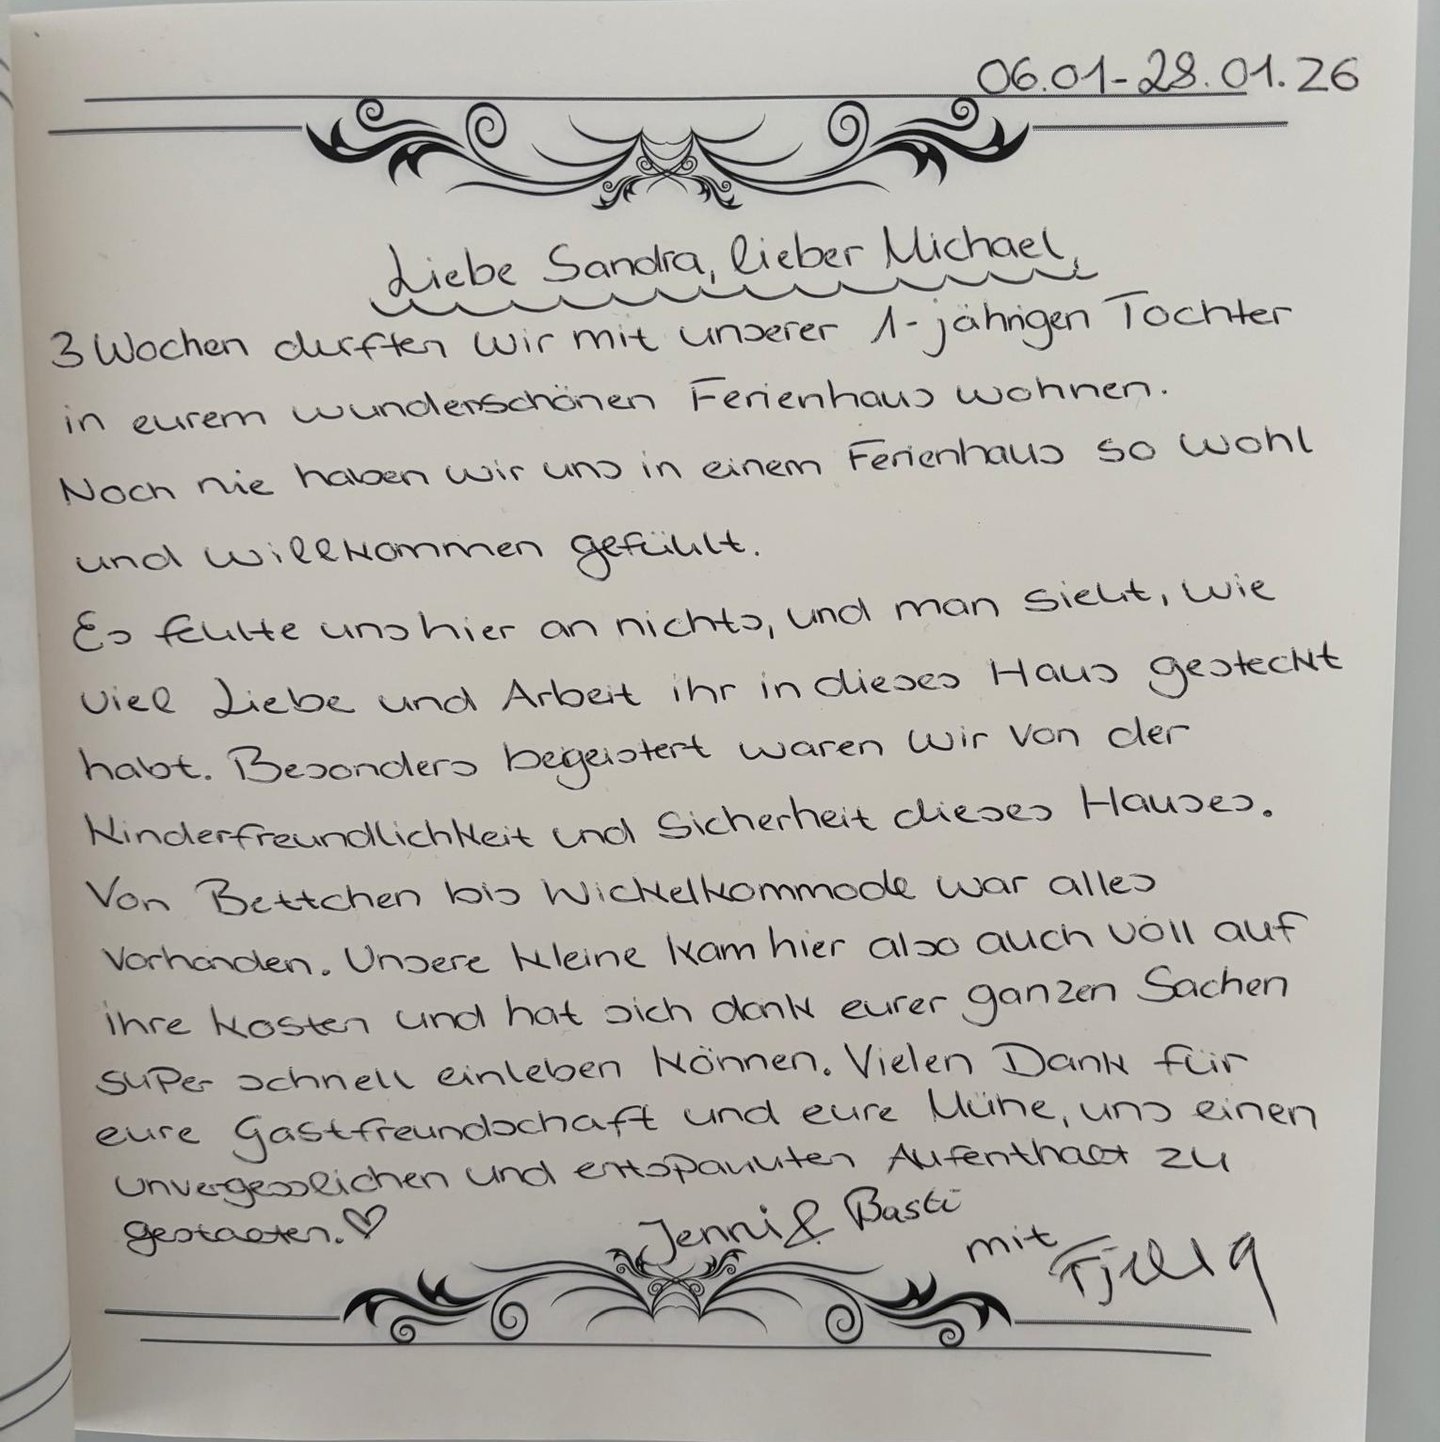 06.01-28.01.26
Liebe Sandra, lieber Michael,
3 Wochen durften wir mit unserer 1-jährigen Tochter
in eurem wunderschönen Ferienhaus wohnen.
Noch nie haben wir uns in einem Ferienhaus so wohl
und willkommen gefühlt.
Es fehlte uns hier an nichts, und man sieht, wie
viel Liebe und Arbeit ihr in dieses Haus gesteckt
habt. Besonders begeistert waren wir von der
Kinderfreundlichkeit und Sicherheit dieses Hauses.
Von Bettchen bis Wickelkommode war alles
vorhanden. Unsere kleine kam hier also auch voll auf
ihre kosten und hat sich dank eurer ganzen Sachen
super schnell einleben können. Vielen Dank für
eure Gastfreundschaft und eure Mühe, uns einen
unvergesslichen und entspannten Aufenthalt zu
gestalten.♡
Jenni & Basti
mit